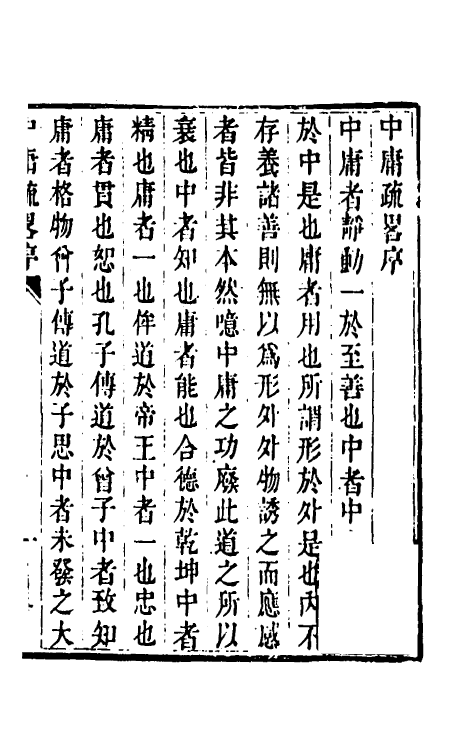 中庸疏畧序
中庸者靜動一於至善也中者中
於中是也庸者用也所謂形於外是也內不
存養諸善則無以為形外外物誘之而應感
者皆非其本然噫中庸之功廢此道之所以
衰也中者知也庸者能也合德於乾坤中者
精也庸者一也侔道於帝王中者一也忠也
庸者貫也恕也孔子傳道於曾子中者致知
庸者格物曾子傳道於子思中者未發之大
中庸疏畧序 一